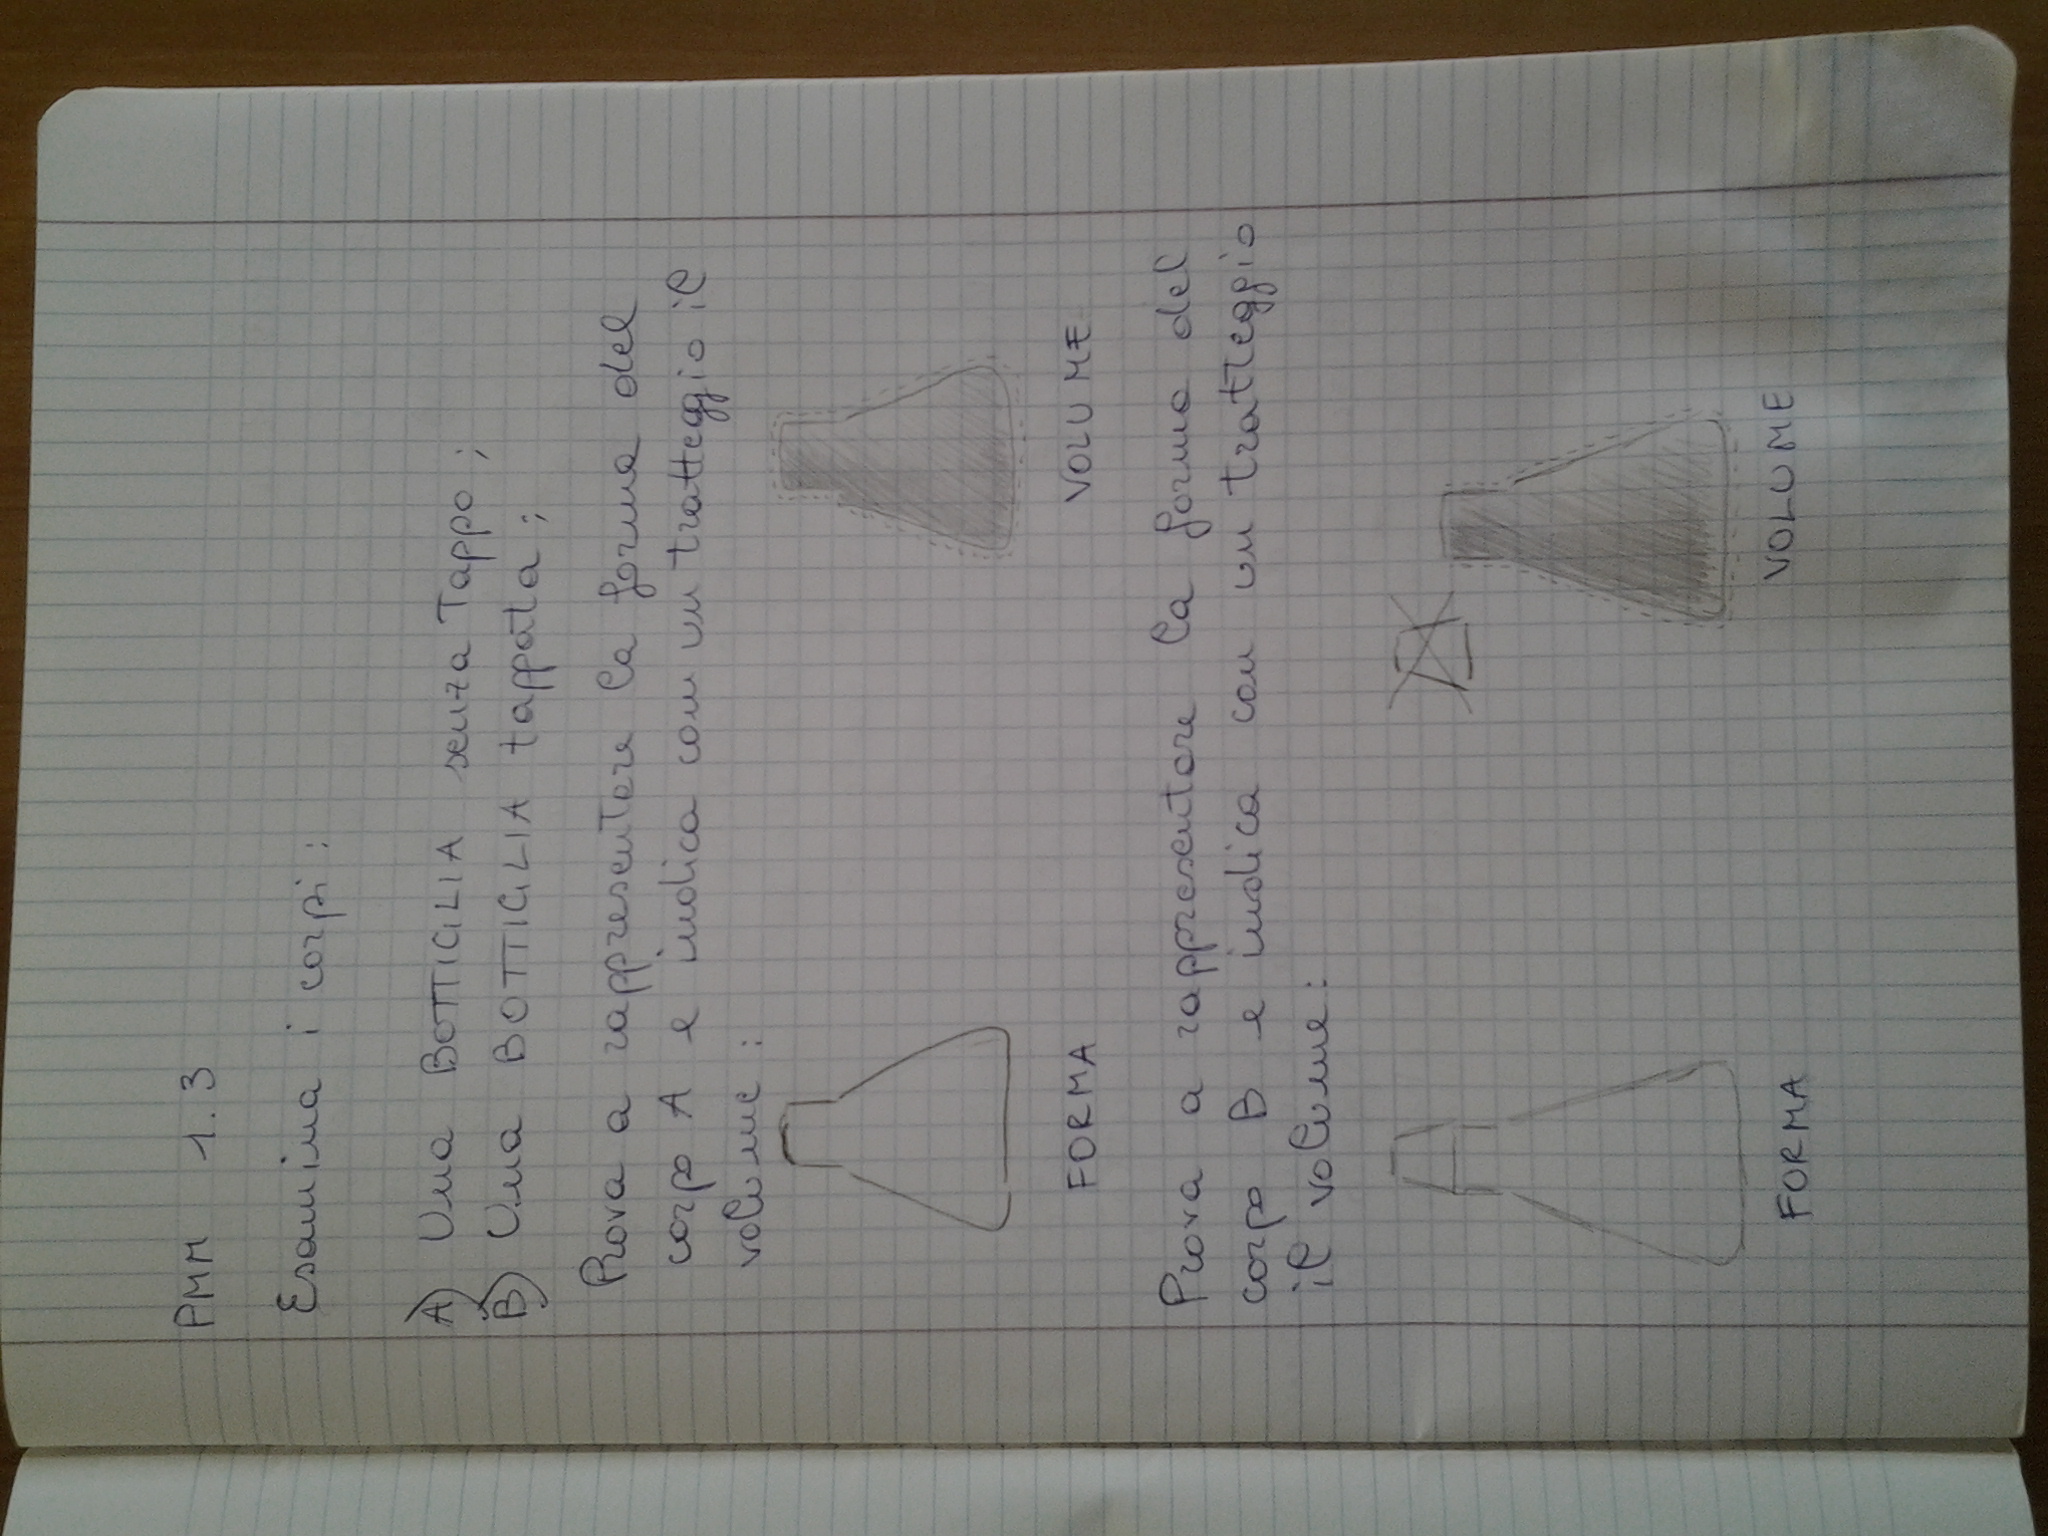 PMM 1.3
Esamina i corpi:
A) Una BOTTIGLIA senza Tappo;
B) Una BOTTIGLIA tappata;
Prova a rappresentare la forma del
corpo A e indica con un tratteggio il
volume:
FORMA VOLUME
Prova a rappresentare la forma del
corpo B e indica con un tratteggio
il volume:
FORMA VOLUME